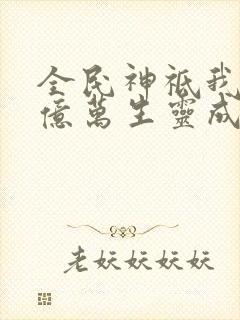 全民神祇我
億萬生靈成
老妖妖妖妖